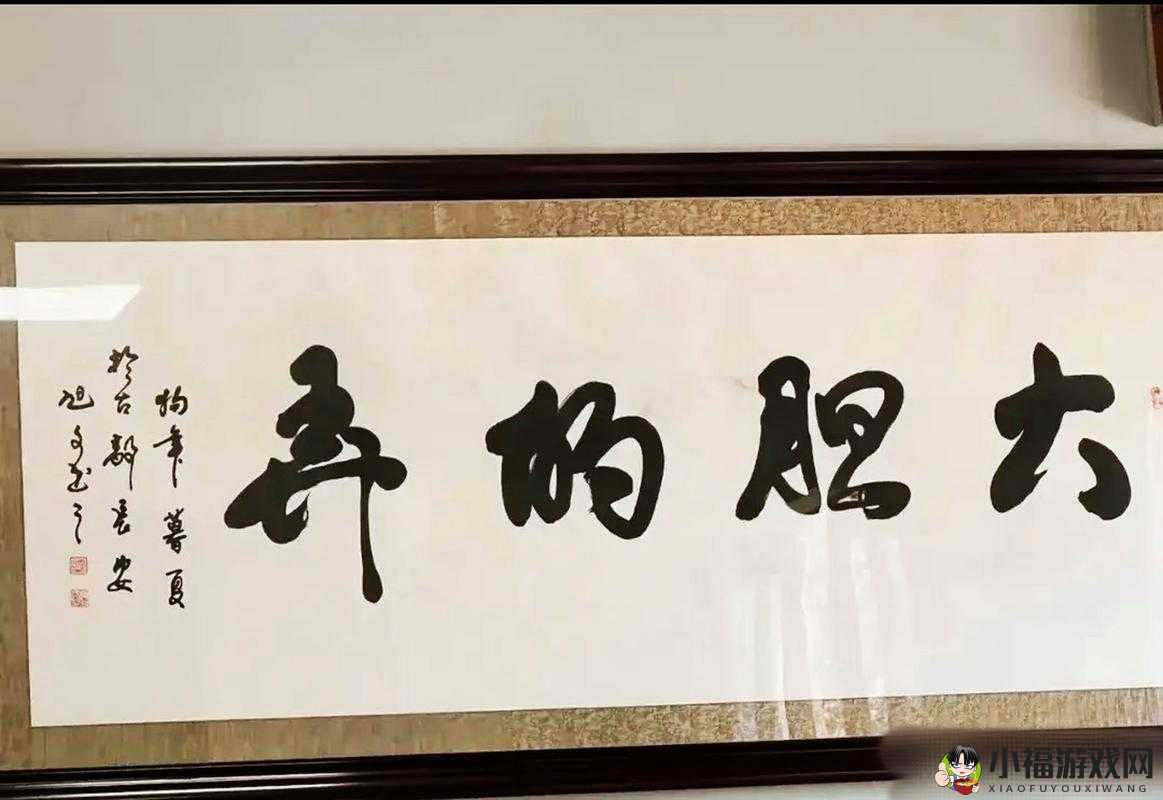 大胆弄
狗年暮夏
於古都長安
旭文书之
小福游戏网
XIAOFUYOUXIWANG